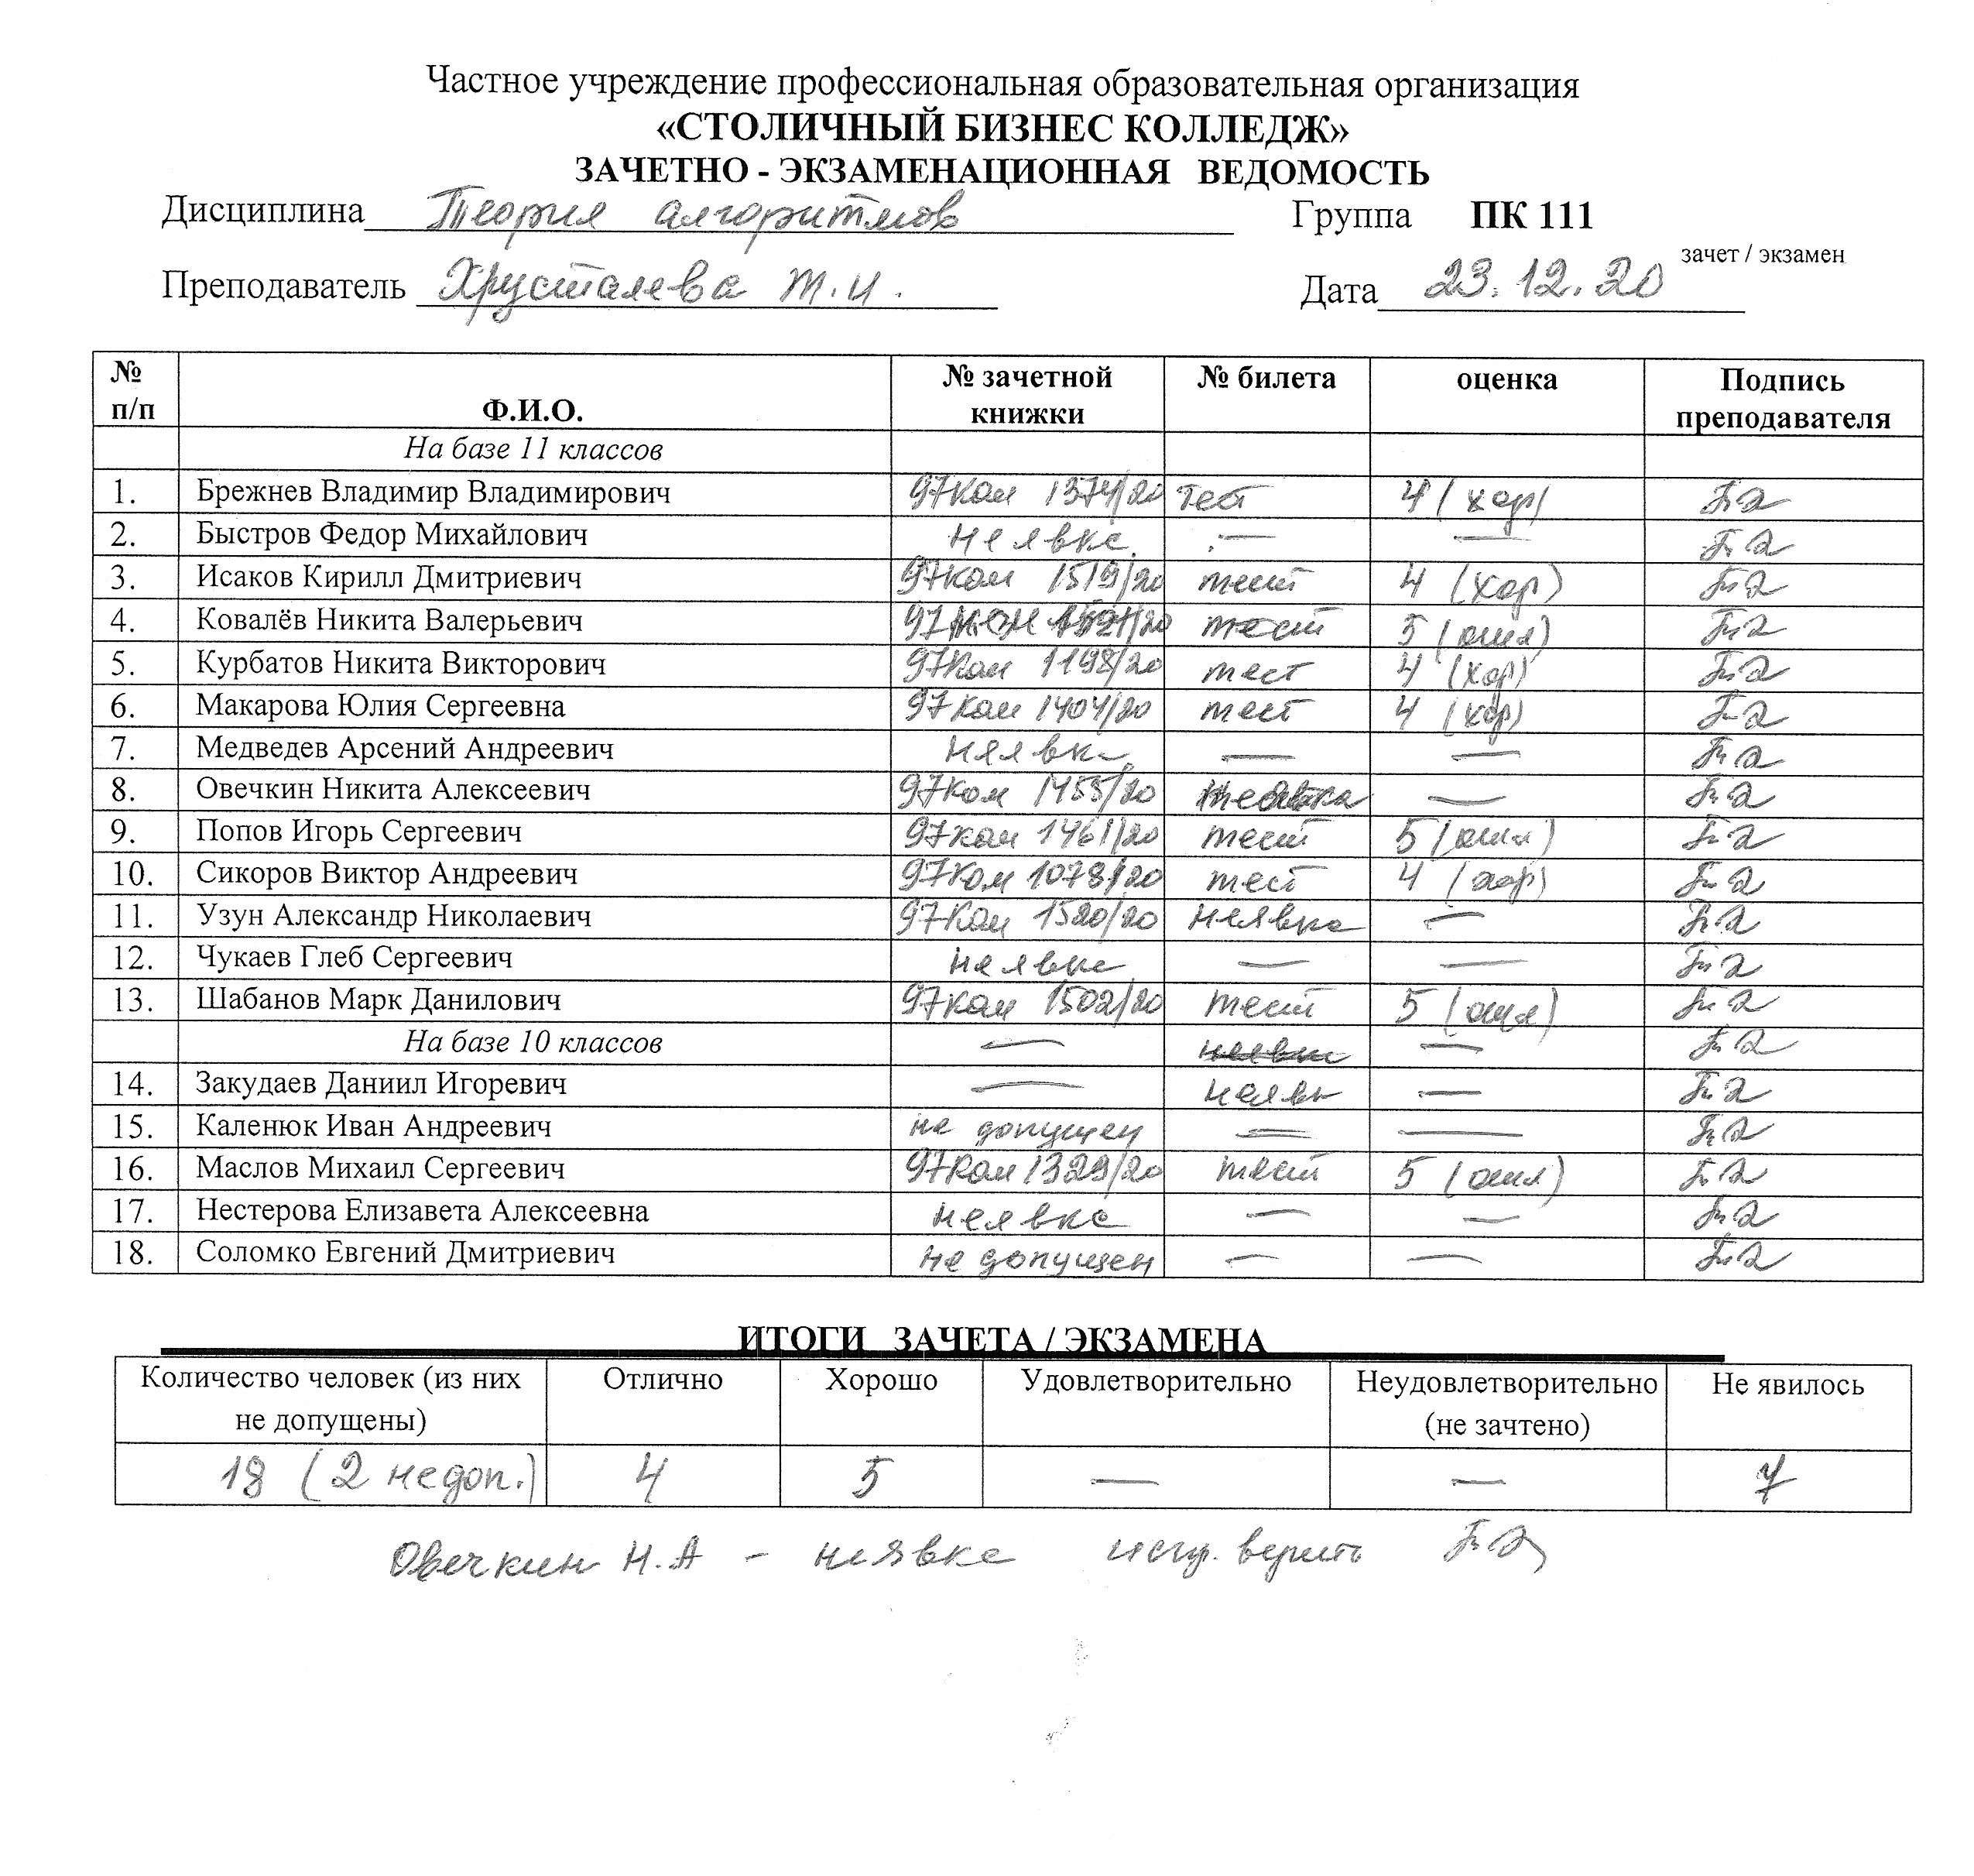 Частное учреждение профессиональная образовательная организация
«СТОЛИЧНЫЙ БИЗНЕС КОЛЛЕДЖ»
ЗАЧЕТНО - ЭКЗАМЕНАЦИОННАЯ ВЕДОМОСТЬ
Дисциплина Теория алгоритмов Группа ПК 111
зачет / экзамен
Преподаватель Хрусталева Т.И. Дата 23.12.20
№ п/п Ф.И.О. № зачетной книжки № билета оценка Подпись преподавателя
На базе 11 классов
1. Брежнев Владимир Владимирович 97Ком 1374/20 тест 4 (хор)
2. Быстров Федор Михайлович неявка — —
3. Исаков Кирилл Дмитриевич 97Ком 1519/20 тест 4 (хор)
4. Ковалёв Никита Валерьевич тест 5 (отл)
5. Курбатов Никита Викторович 97Ком 1198/20 тест 4 (хор)
6. Макарова Юлия Сергеевна 97Ком 1404/20 тест 4 (хор)
7. Медведев Арсений Андреевич неявка — —
8. Овечкин Никита Алексеевич 97Ком 1455/20 неявка —
9. Попов Игорь Сергеевич 97Ком 1461/20 тест 5 (отл)
10. Сикоров Виктор Андреевич 97Ком 1078/20 тест 4 (хор)
11. Узун Александр Николаевич 97Ком 1520/20 неявка —
12. Чукаев Глеб Сергеевич неявка — —
13. Шабанов Марк Данилович 97Ком 1502/20 тест 5 (отл)
На базе 10 классов — неявка —
14. Закудаев Даниил Игоревич — неявк —
15. Каленюк Иван Андреевич не допущен — —
16. Маслов Михаил Сергеевич 97Ком 1329/20 тест 5 (отл)
17. Нестерова Елизавета Алексеевна неявка — —
18. Соломко Евгений Дмитриевич не допущен — —
ИТОГИ ЗАЧЕТА / ЭКЗАМЕНА
Количество человек (из них не допущены) Отлично Хорошо Удовлетворительно Неудовлетворительно (не зачтено) Не явилось
18 (2 недоп.) 4 5 — — 7
Овечкин Н.А - неявка испр. верить